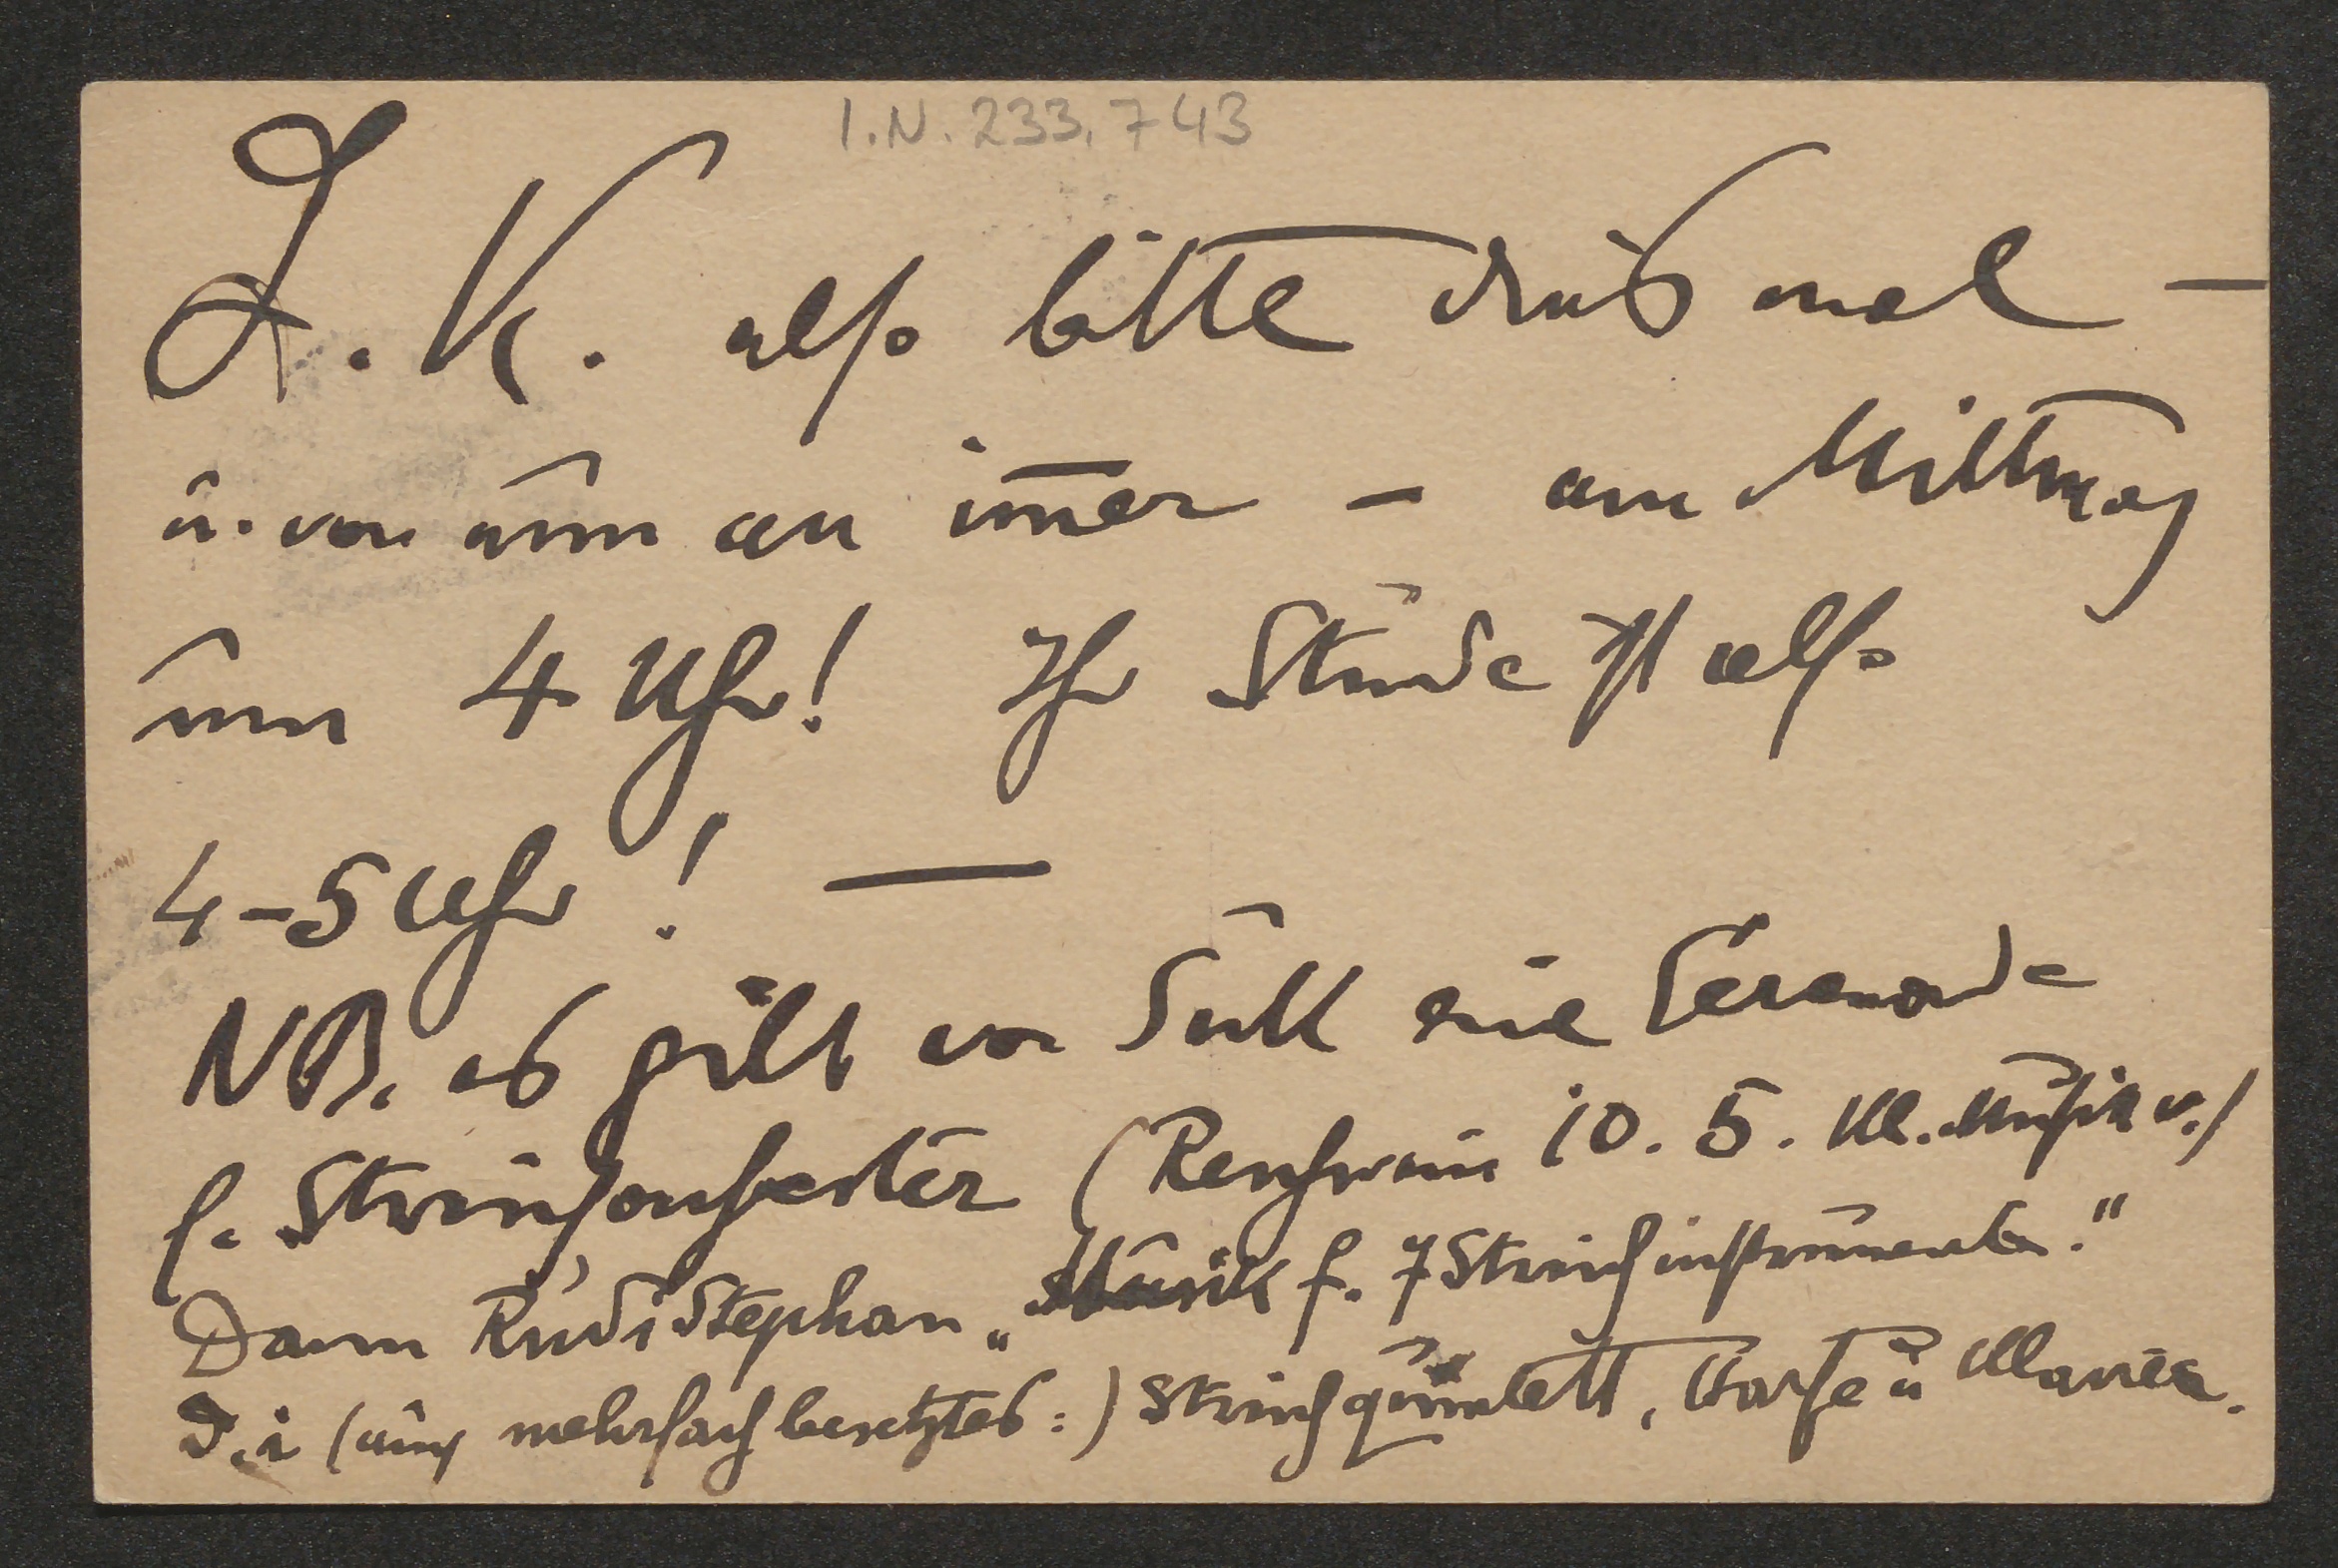 I.N. 233.743
L. K. also bitte dies mal —
u. von nun an im̄er — am Mittwoch
um 4 Uhr! Ihr Stunde ist also
4-5 Uhr! —
NB. es gibt von Suk eine Serenade
f. Streichorchester ( 10. 5. Kl. Musik v.)
Dann Rudi Stephan „Musik f. 7 Streichinstrumente."
D.i (auch mehrfach besetztes:) Streichquintett, Harfe u Klavier.